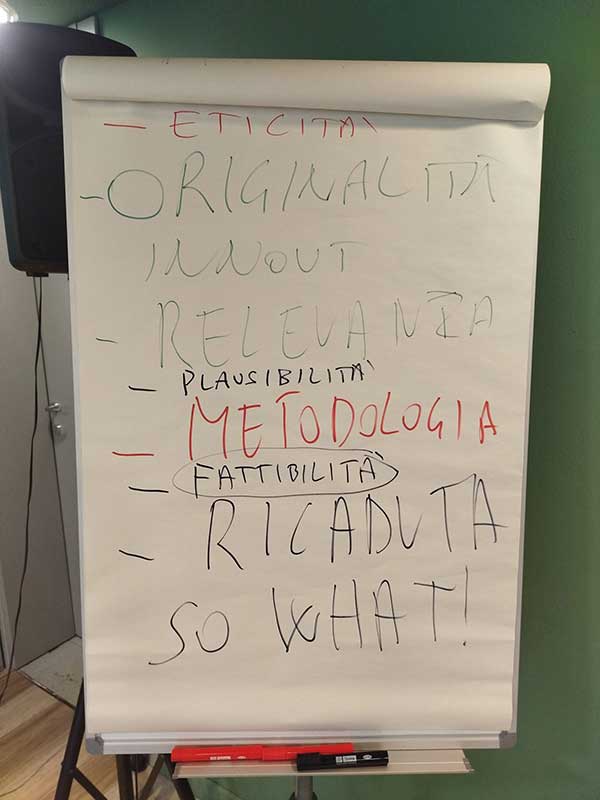 - ETICITÀ
- ORIGINALITÀ
INNOVT
- RELEVANZA
- PLAUSIBILITÀ
- METODOLOGIA
- FATTIBILITÀ
- RICADUTA
SO WHAT!